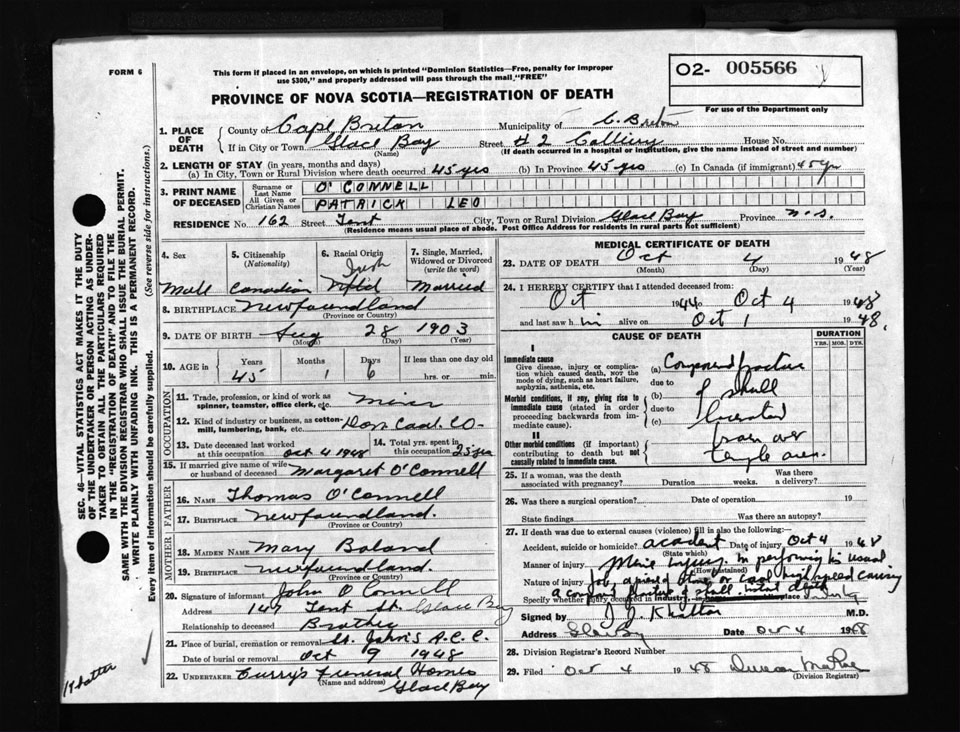 FORM 6
This form if placed in an envelope, on which is printed "Dominion Statistics—Free, penalty for improper
use $300," and properly addressed will pass through the mail "FREE"
02- 005566
For use of the Department only
PROVINCE OF NOVA SCOTIA—REGISTRATION OF DEATH
1. PLACE OF DEATH
County of Cape Breton Municipality of C. Breton
If in City or Town Glace Bay Street # 2 Colliery House No.
(Name) (If death occurred in a hospital or institution, give the name instead of street and number)
2. LENGTH OF STAY (in years, months and days)
(a) In City, Town or Rural Division where death occurred 45 yrs (b) In Province 45 yrs (c) In Canada (if immigrant) 45 yr
3. PRINT NAME OF DECEASED
Surname or Last Name O'CONNELL
All Given or Christian Names PATRICK LEO
RESIDENCE No. 162 Street Tent City, Town or Rural Division Glace Bay Province N.S.
(Residence means usual place of abode. Post Office Address for residents in rural parts not sufficient)
4. Sex Male
5. Citizenship (Nationality) Canadian
6. Racial Origin Irish Nfld
7. Single, Married, Widowed or Divorced (write the word) Married
8. BIRTHPLACE Newfoundland
(Province or Country)
9. DATE OF BIRTH Aug 28 1903
(Month) (Day) (Year)
10. AGE in Years Months Days If less than one day old
45 1 6 hrs. or min.
OCCUPATION
11. Trade, profession, or kind of work as spinner, teamster, office clerk, etc. Miner
12. Kind of industry or business, as cotton-mill, lumbering, bank, etc. Dom Coal Co-
13. Date deceased last worked at this occupation Oct 4 1948
14. Total yrs. spent in this occupation 25 yrs
15. If married give name of wife or husband of deceased Margaret O'Connell
FATHER
16. NAME Thomas O'Connell
17. BIRTHPLACE Newfoundland.
(Province or Country)
MOTHER
18. MAIDEN NAME Mary Boland
19. BIRTHPLACE Newfoundland.
(Province or Country)
20. Signature of informant John O'Connell
Address 147 Tent St. Glace Bay
Relationship to deceased Brother
21. Place of burial, cremation or removal St. John's R.C.C.
Date of burial or removal Oct 9 1948
22. UNDERTAKER Curry's Funeral Homes
(Name and address) Glace Bay
MEDICAL CERTIFICATE OF DEATH
23. DATE OF DEATH Oct 4 1948
(Month) (Day) (Year)
24. I HEREBY CERTIFY that I attended deceased from:
Oct 1944 to Oct 4 1948
and last saw him alive on Oct 1 1948.
CAUSE OF DEATH
DURATION
YRS. MOS. DYS.
I
Immediate cause
Give disease, injury or complication which caused death, not the mode of dying, such as heart failure, asphyxia, asthenia, etc.
Morbid conditions, if any, giving rise to immediate cause (stated in order proceeding backwards from immediate cause).
II
Other morbid conditions (if important) contributing to death but not causally related to immediate cause.
(a) Compound fracture
due to
(b) of skull
due to
(c)
from over
temple area.
25. If a woman, was the death associated with pregnancy? Duration weeks. Was there a delivery?
26. Was there a surgical operation? Date of operation 19
State findings Was there an autopsy?
27. If death was due to external causes (violence) fill in also the following:—
Accident, suicide or homicide? accident Date of injury Oct 4 1948
(State which)
Manner of injury Mine injury. In performing his usual
(How sustained)
Nature of injury job a piece stone or coal high speed causing
a compound fracture of skull. instant death
Specify whether injury occurred in industry, in home, or in public place Industry
Signed by M.D.
Address Glace Bay Date Oct 4 1948
28. Division Registrar's Record Number
29. Filed Oct 4 1948 Duncan MacRae
(Division Registrar)
SEC. 46—VITAL STATISTICS ACT MAKES IT THE DUTY
OF THE UNDERTAKER OR PERSON ACTING AS UNDER-
TAKER TO OBTAIN ALL THE PARTICULARS REQUIRED
IN THE "REGISTRATION OF DEATH" AND TO FILE THE
SAME WITH THE DIVISION REGISTRAR WHO SHALL ISSUE THE BURIAL PERMIT.
WRITE PLAINLY WITH UNFADING INK. THIS IS A PERMANENT RECORD.
Every item of information should be carefully supplied. (See reverse side for instructions.)
Khatter